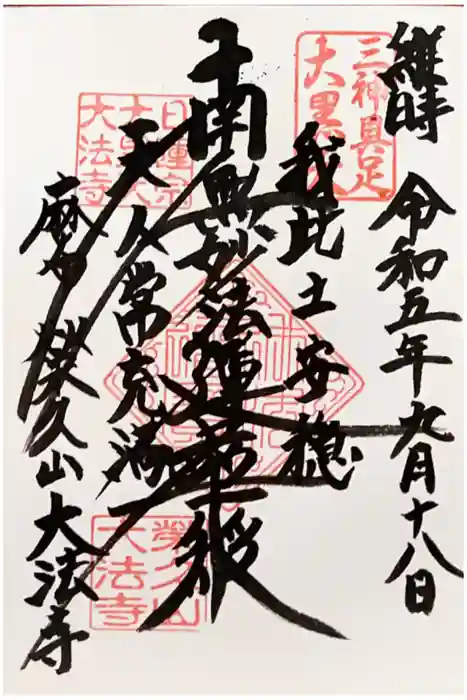 維時 令和五年九月十八日
三神具足
大黒天
我此土安穏
南無妙法蓮華経
天人常充満
日蓮宗
大黒天
大法寺
麻布 榮久山大法寺
榮久山
大法寺